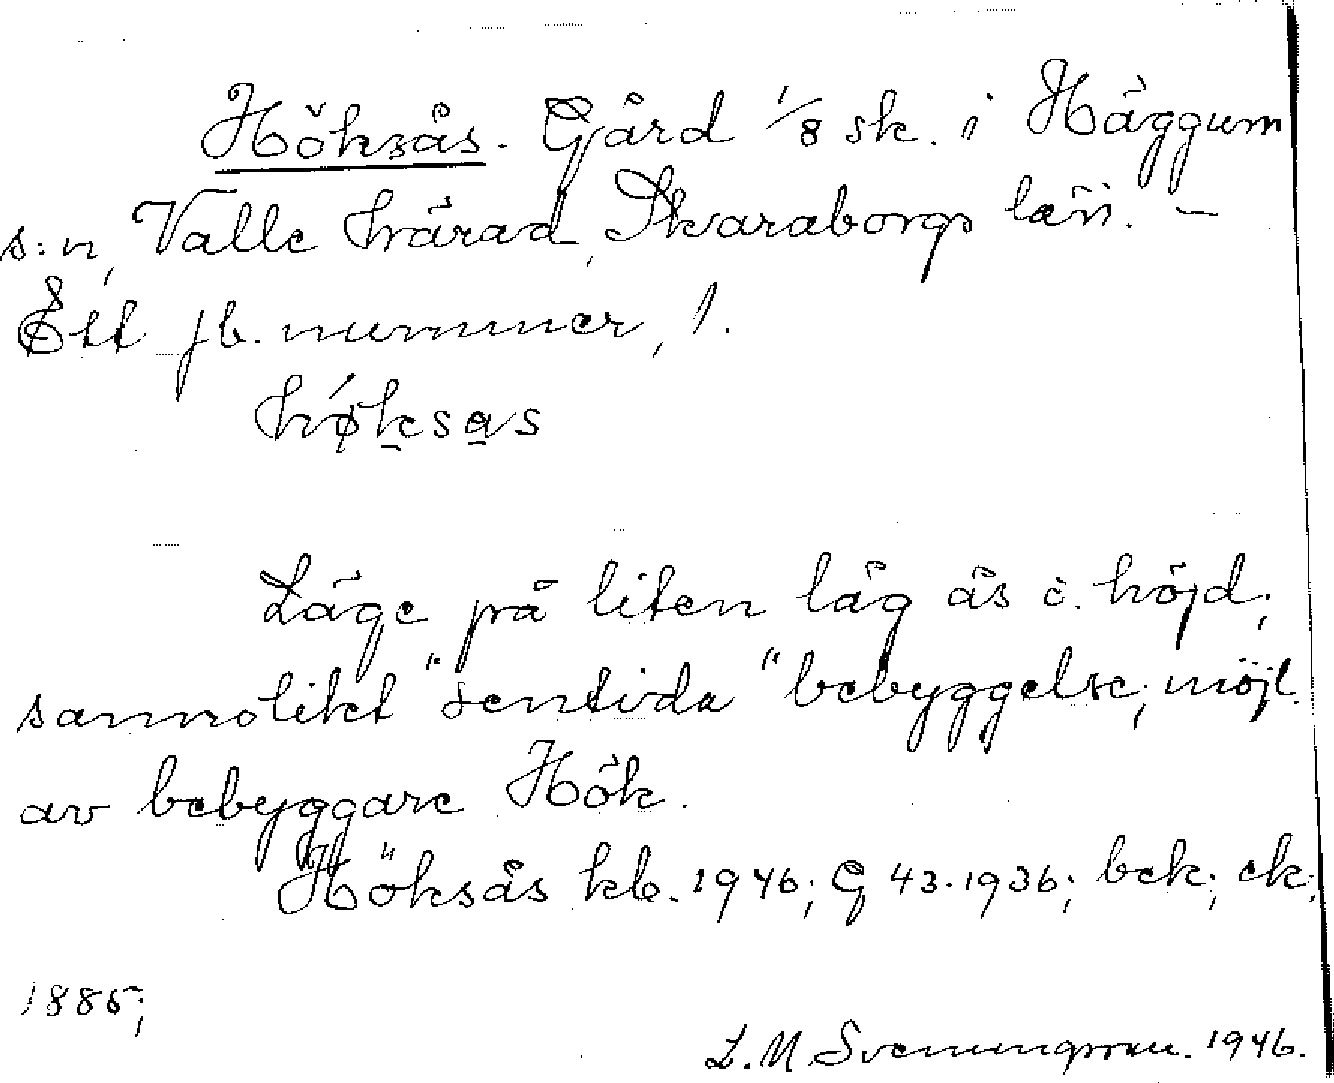 Höksås. Gård 1/8 sk. i Häggum
s:n, Valle härad, Skaraborgs län. –
Ett jb. nummer, 1.
hǿksas
Läge på liten låg ås o. höjd;
sannolikt "sentida" bebyggelse; möjl.
av bebyggare Hök.
Höksås kb. 1946; G 43.1936; bek; ek;
1885;
L. M. Svenungsson. 1946.